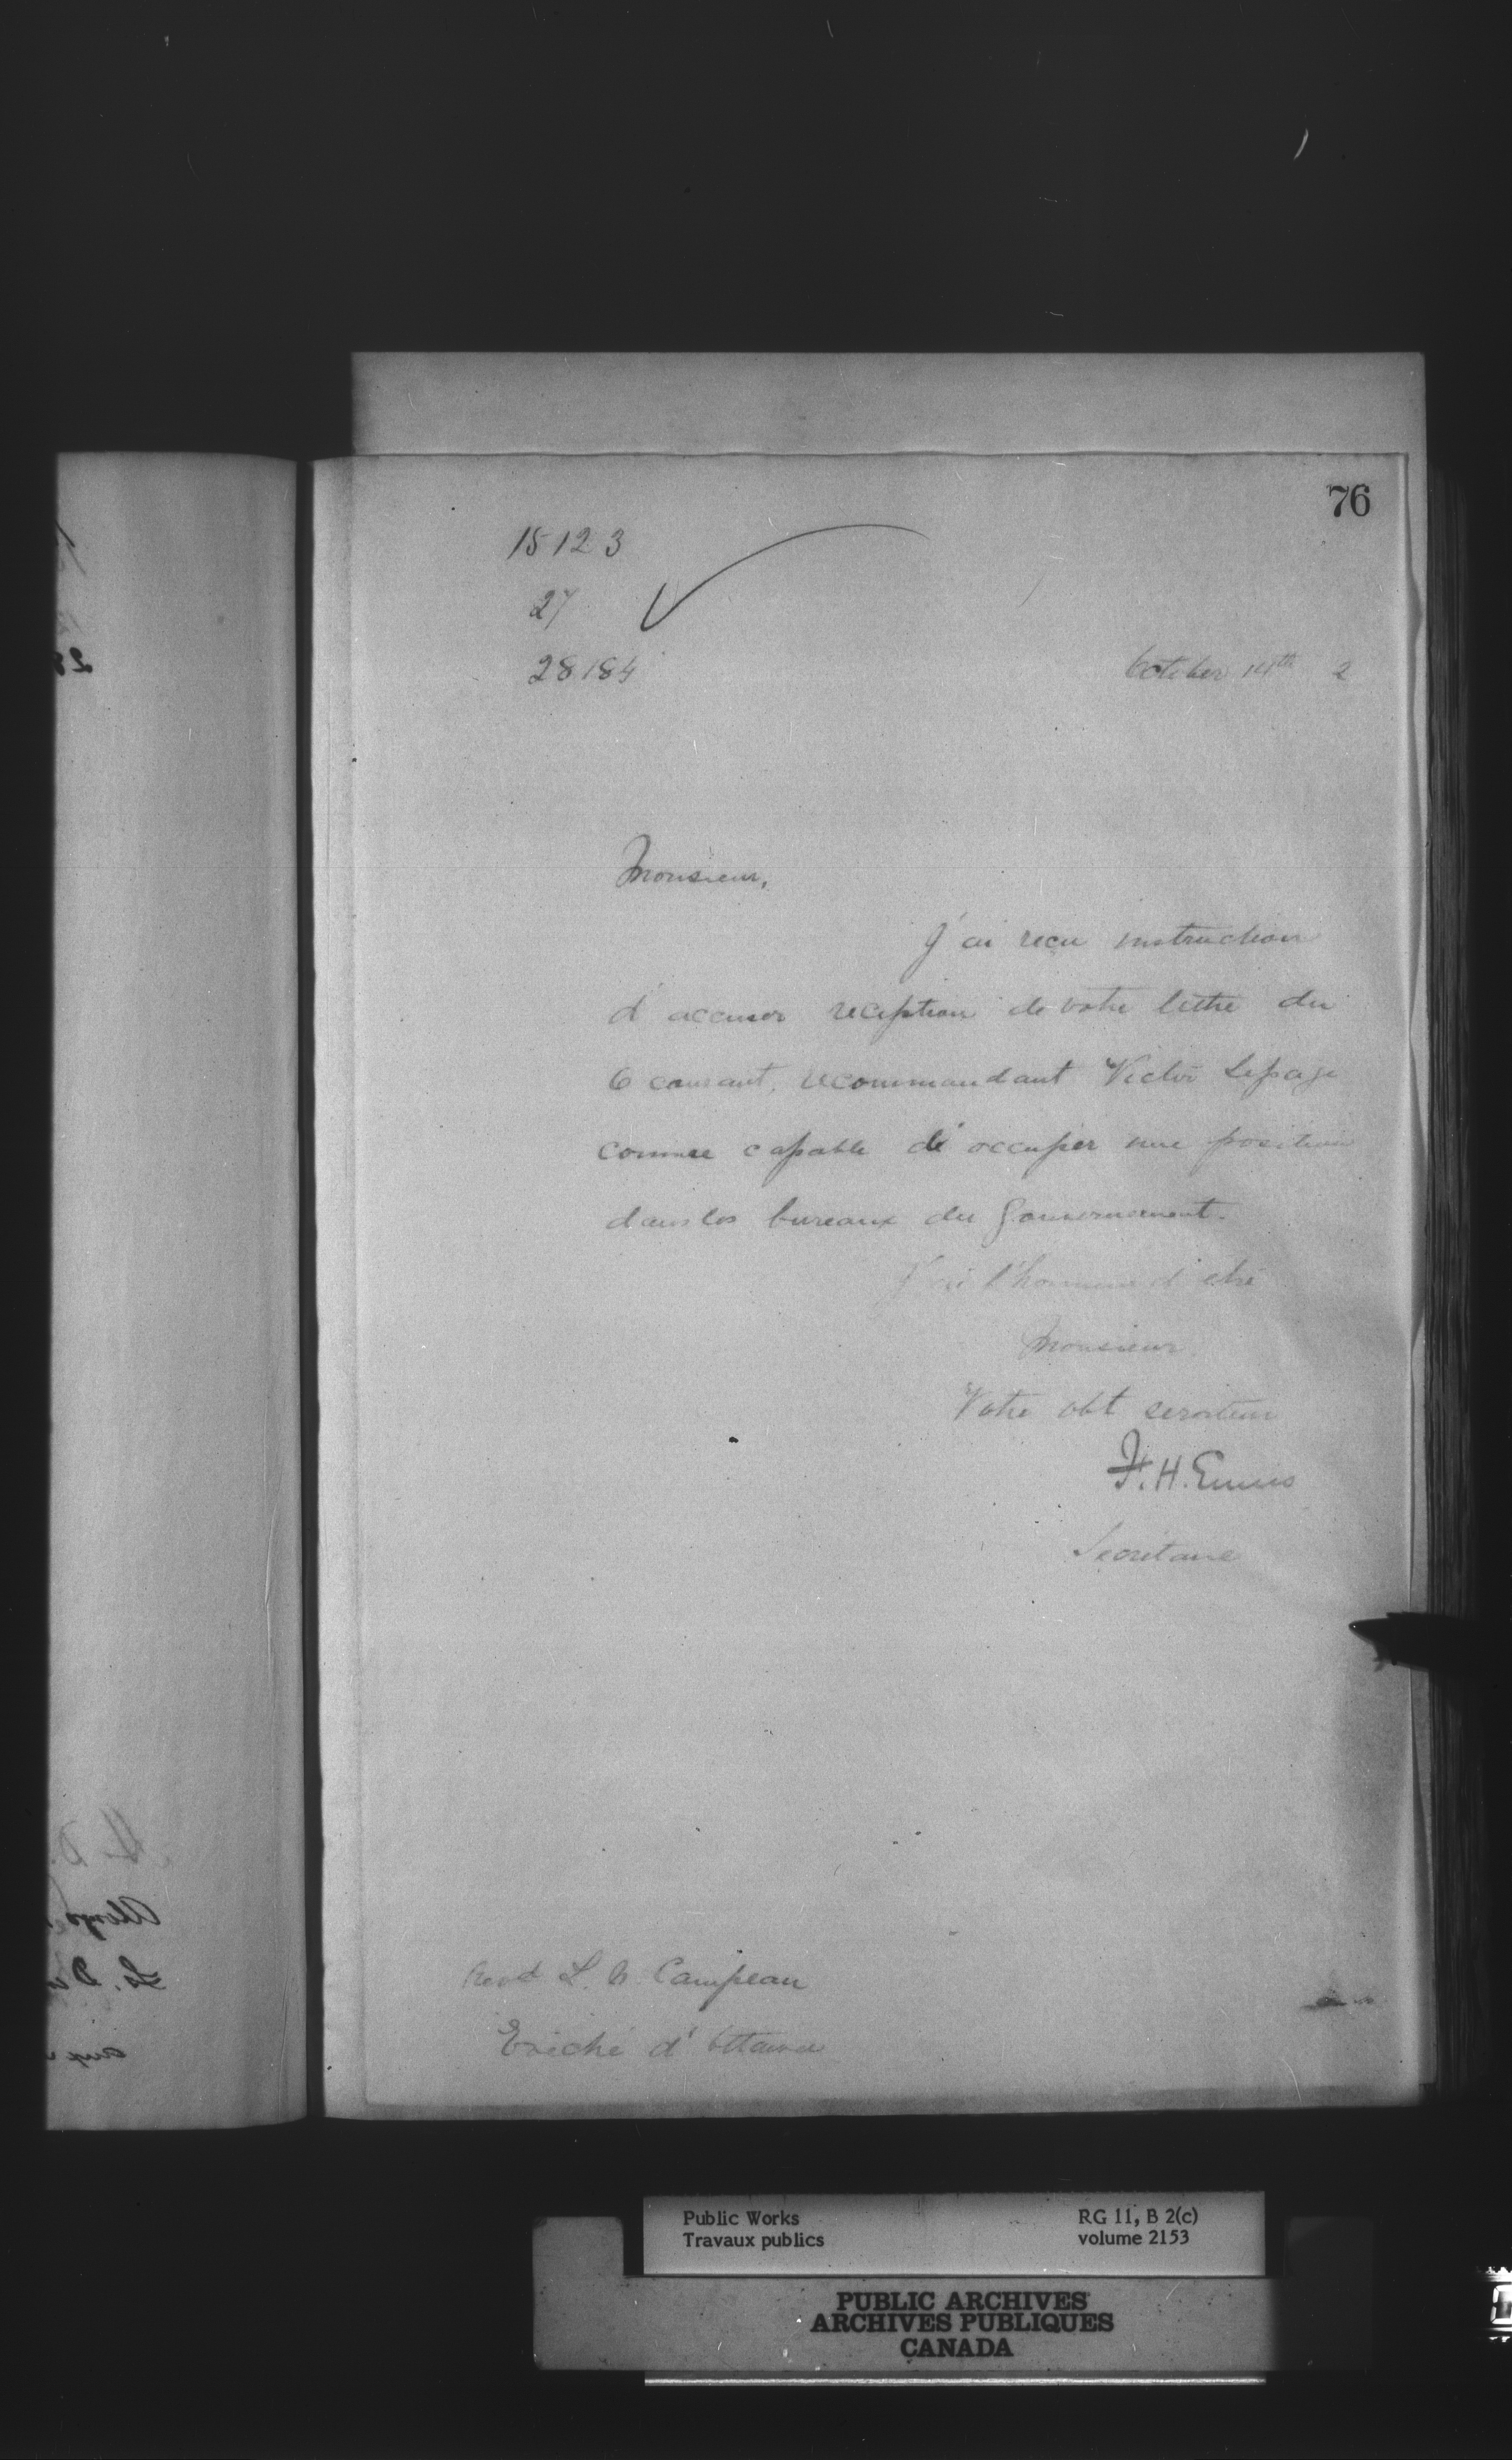 76
15123
27
28184
October 14th 2
Monsieur,
J'ai reçu instruction
d'accuser reception de votre lettre du
6 courant, recommandant Victor Lepage
comme capable d'occuper une position
dans les bureaux du Gouvernement.
J'ai l'honneur d'etre
Monsieur
Votre obt serviteur
F. H. Ennis
Secrétaire
Revd L. N. Campeau
Evêché d'Ottawa
Public Works
Travaux publics
RG 11, B 2(c)
volume 2153
PUBLIC ARCHIVES
ARCHIVES PUBLIQUES
CANADA